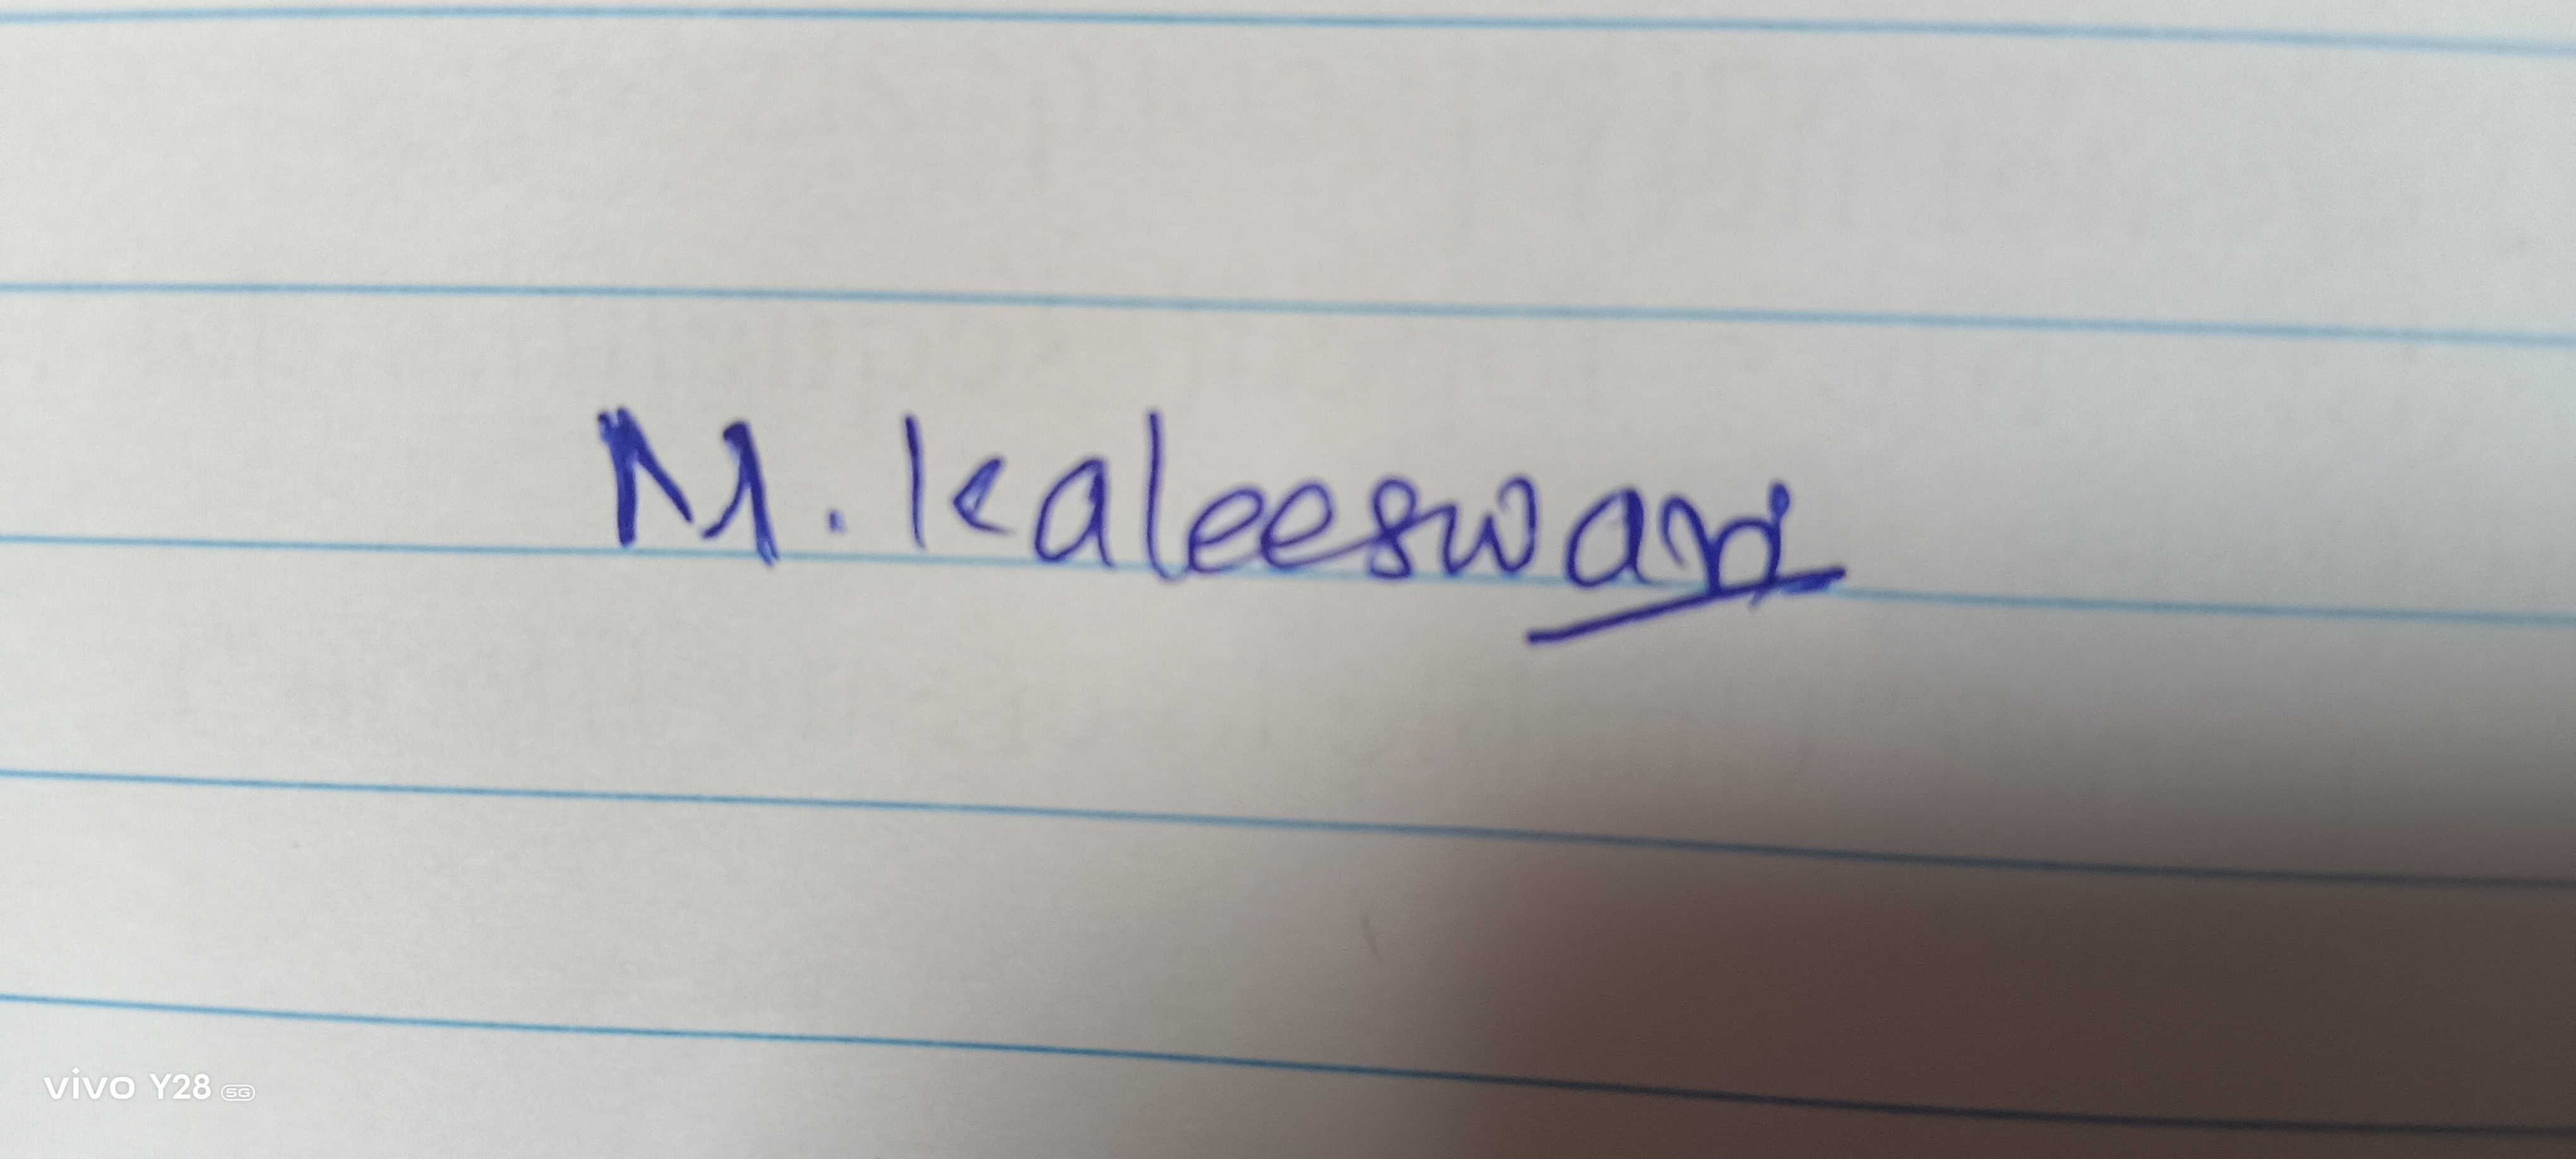 M. Kaleeswari
vivo Y28 5G